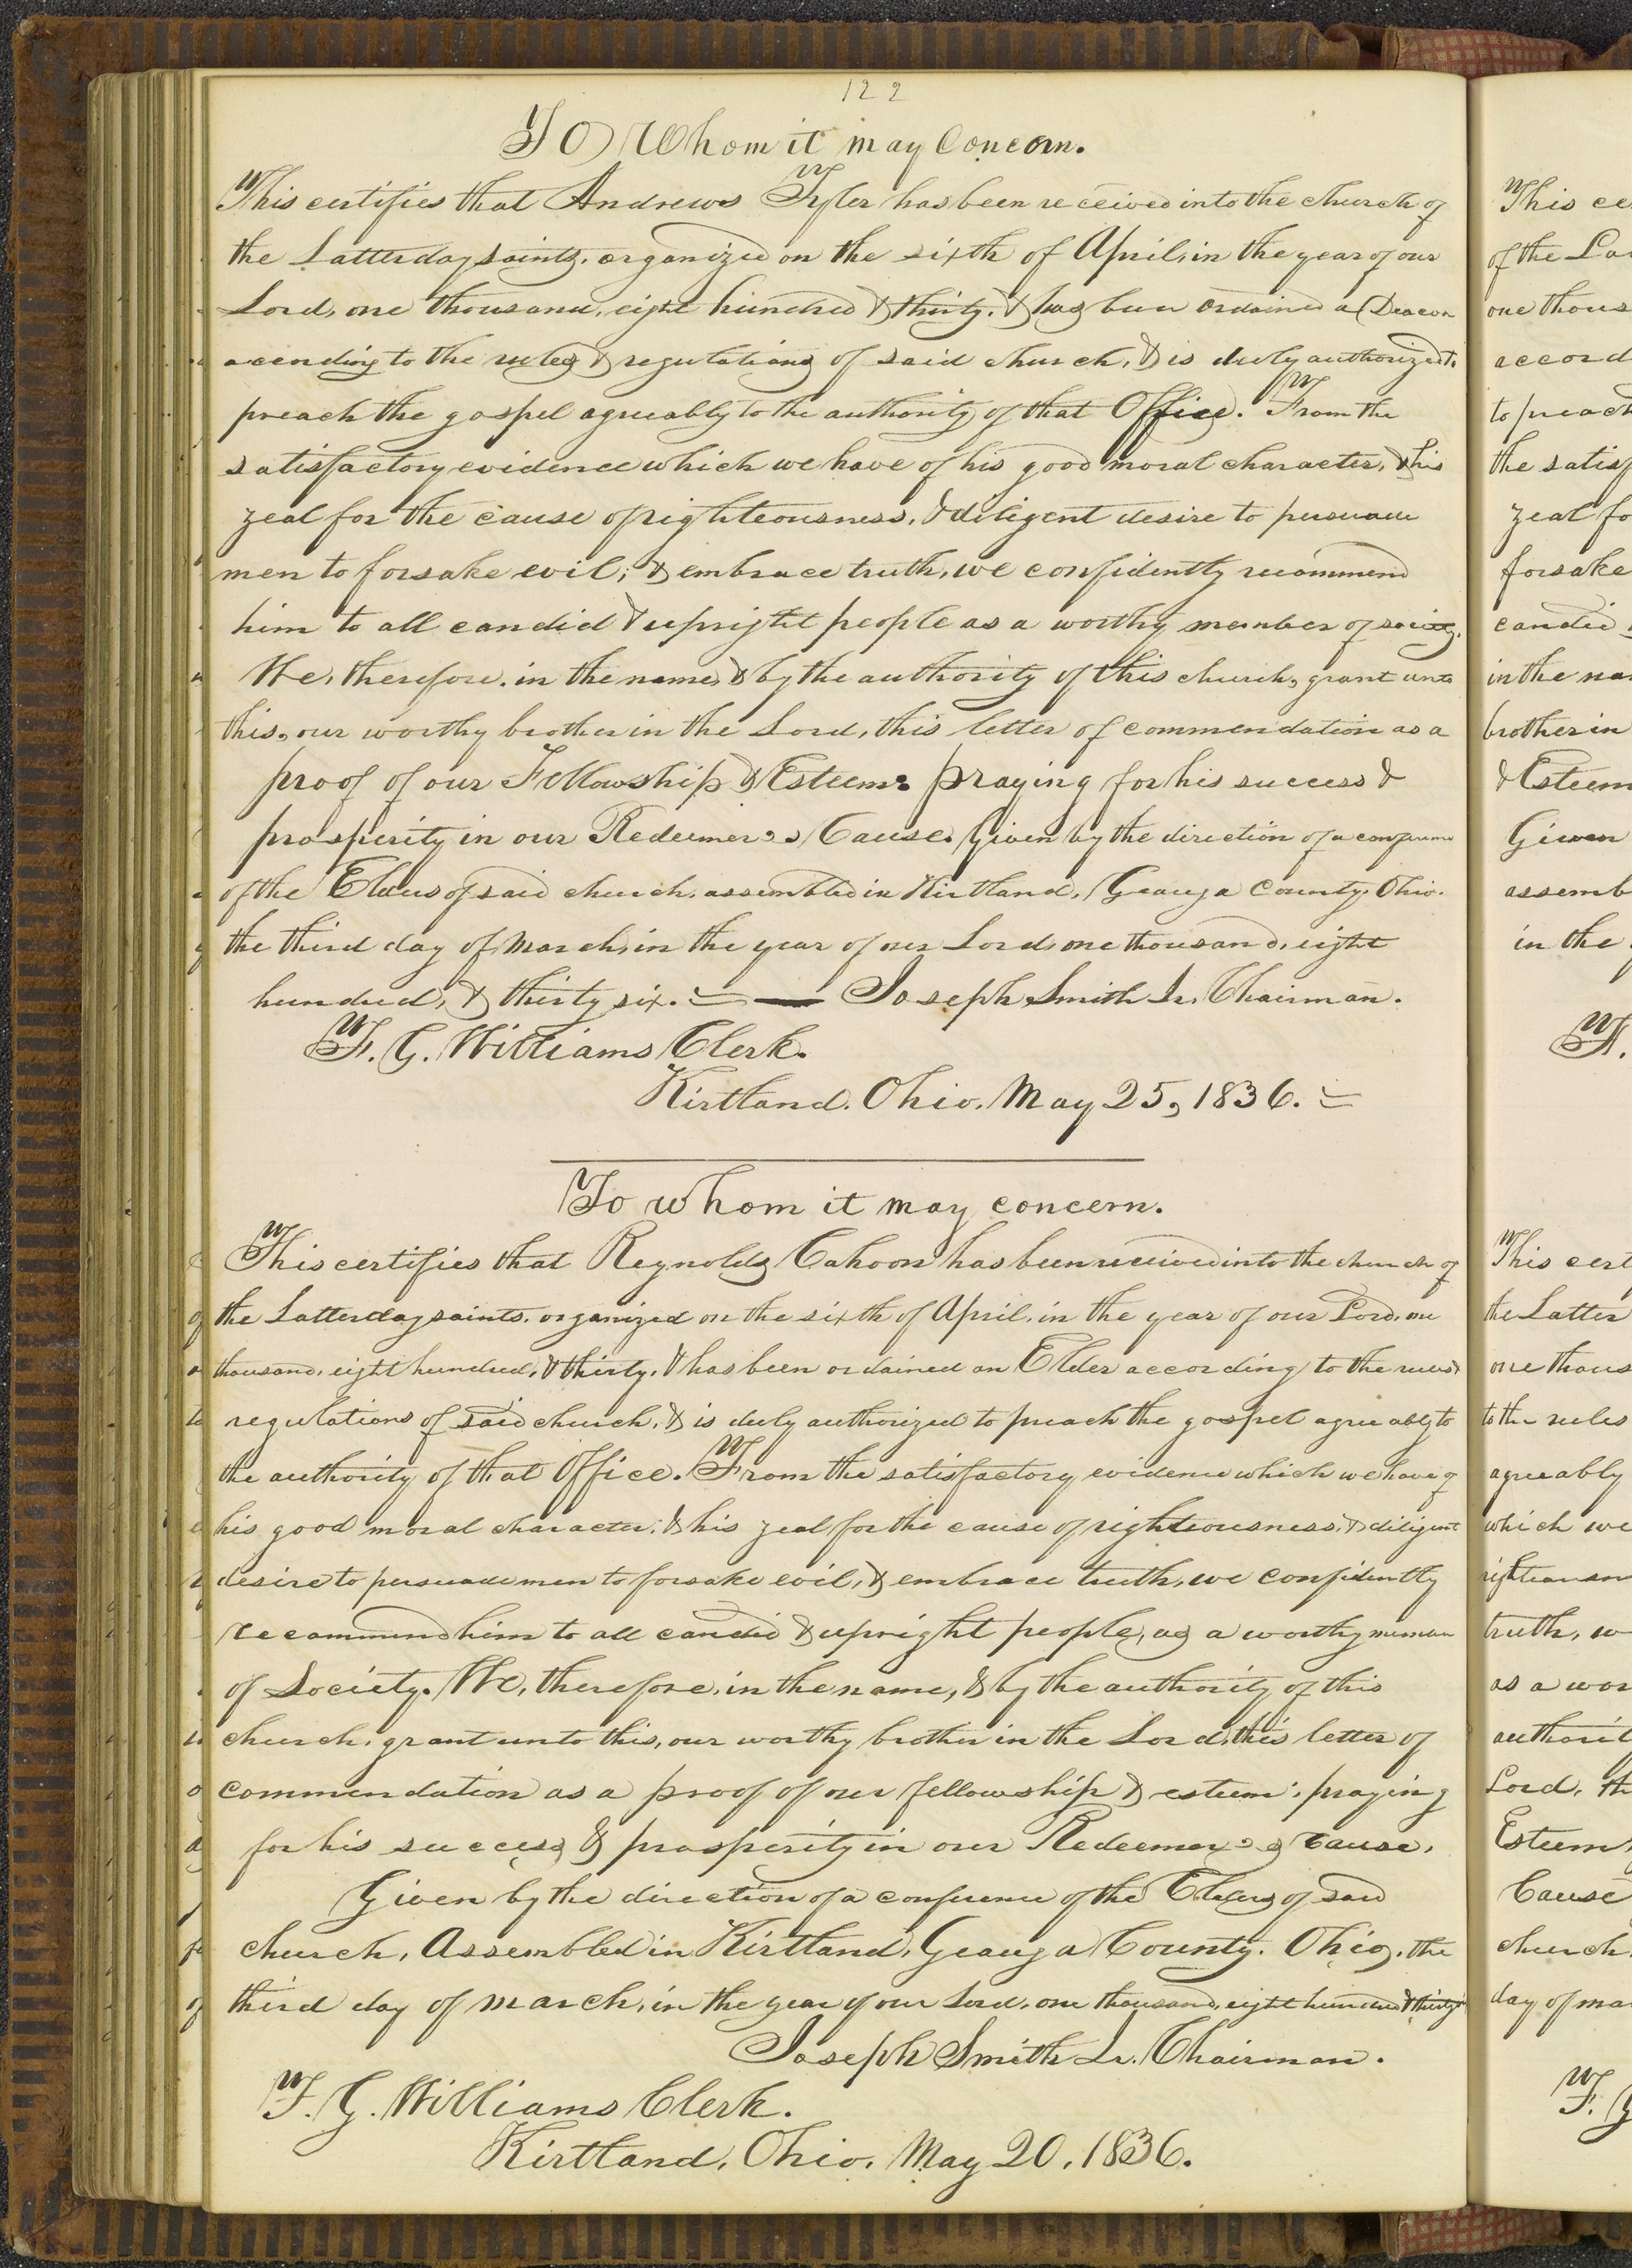 122
To Whom it may Concern.
This certifies that Andrews Tyler has been received into the church of
the Latterday saints, organized on the sixth of April, in the year of our
Lord, one thousand, eight hundred & thirty, & has been ordained a Deacon
according to the rules & regulations of said church, & is duly authorized to
preach the gospel agreeably to the authority of that Office. From the
satisfactory evidence which we have of his good moral character, & his
zeal for the cause of righteousness, & diligent desire to persuade
men to forsake evil; & embrace truth, we confidently recommend
him to all candid & upright people as a worthy member of society.
We, therefore, in the name, & by the authority of this church, grant unto
this, our worthy brother in the Lord, this letter of commendation as a
proof of our Fellowship & Esteem: praying for his success &
prosperity in our Redeemer's Cause. Given by the direction of a conference
of the Elders of said church, assembled in Kirtland, Geauga County, Ohio.
the third day of March, in the year of our Lord, one thousand, eight
hundred, & thirty six. — Joseph Smith Jr. Chairman.
F. G. Williams Clerk.
Kirtland, Ohio, May 25, 1836.
To whom it may concern.
This certifies that Reynolds Cahoon has been received into the church of
the Latterday saints, organized on the sixth of April, in the year of our Lord, one
thousand, eight hundred, & thirty, & has been ordained an Elder according to the rules &
regulations of said church, & is duly authorized to preach the gospel agreeably to
the authority of that Office. From the satisfactory evidence which we have of
his good moral character, & his zeal for the cause of righteousness, & diligent
desire to persuade men to forsake evil, & embrace truth, we confidently
recommend him to all candid & upright people, as a worthy member
of Society. We, therefore, in the name, & by the authority of this
church, grant unto this, our worthy brother in the Lord, this letter of
commendation as a proof of our fellowship & esteem: praying
for his success & prosperity in our Redeemer's cause.
Given by the direction of a conference of the Elders of said
church, Assembled in Kirtland, Geauga County, Ohio, the
third day of March, in the year of our Lord, one thousand, eight hundred & thirty
Joseph Smith Jr. Chairman.
F. G. Williams Clerk.
Kirtland, Ohio, May 20, 1836.
This ce
of the La
one thous
accord
to preach
the satisf
zeal fo
forsake
candid
in the na
brother in
& Esteem
Given
assemb
in the
This cert
the Latter
one thous
to the rules
agreeably
which we
righteousn
truth, w
as a wor
authorit
Lord, th
Esteem
Cause
church
day of ma
F. G